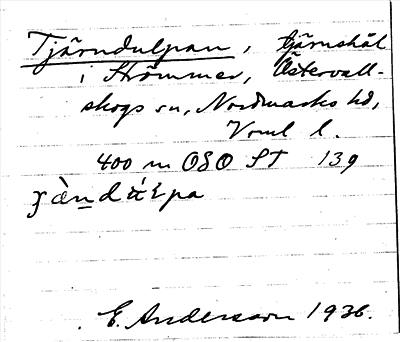 Tjärndulpan, tjärnshål
i Strömmer, Östervall-
skogs sn, Nordmarks hd,
Vrml l.
400 m OSO ST 139
E. Andersson 1936.